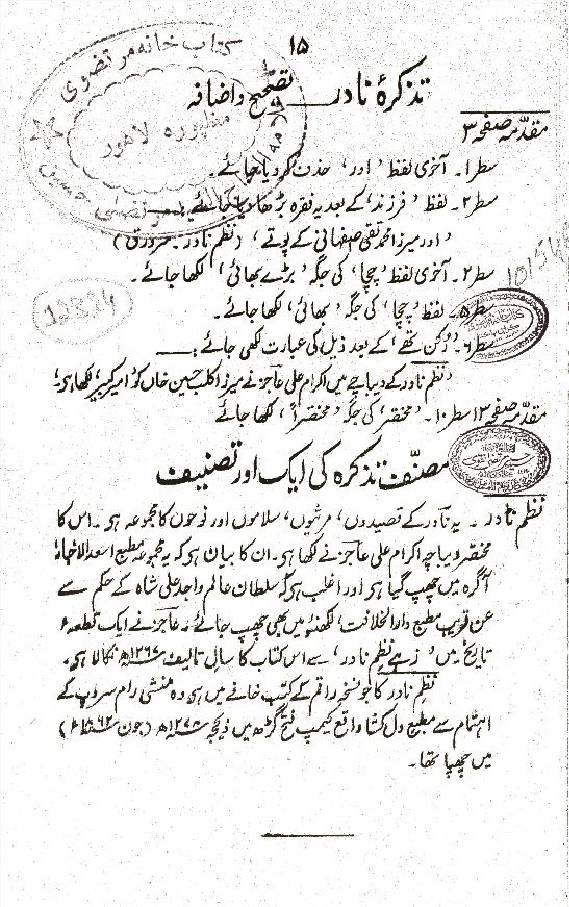 ۱۵
تذکرۂ نادر ــــ تصحیح و اضافہ
کتاب خانہ مرتضوی
مغلپورہ لاہور
مقدّمہ صفحہ ۳
سطر۱۔ آخری لفظ ’اور‘ حذف کر دیا جائے۔
سطر۲۔ لفظ ’فرزند‘ کے بعد یہ فقرہ بڑھا دیا جائے:۔
’اور میرزا محمد تقی صفہانی کے پوتے‘ (نظم نادر۔ سرورق)
سطر۲۔ آخری لفظ ’چچا‘ کی جگہ ’بڑے بھائی‘ لکھا جائے۔
سطر۵۔ لفظ ’چچا‘ کی جگہ ’بھائی‘ لکھا جائے۔
12324
سطر۶۔ ’رکن تھے‘ کے بعد ذیل کی عبارت لکھی جائے:۔
’نظم نادر کے دیباچے میں اکرام علی عاجز نے میرزا کلب حسین خاں کو امیر کبیر لکھا ہی‘
مقدّمہ صفحہ ۱۳ سطر ۱۰۔ ’مختصر‘ کی جگہ ’مختصراً‘ لکھا جائے
مصنّف تذکرہ کی ایک اور تصنیف
نظم نادر۔ یہ نادر کے قصیدوں، مرثیوں، سلاموں اور نوحوں کا مجموعہ ہی۔ اس کا
مختصر دیباچہ اکرام علی عاجز نے لکھا ہی۔ ان کا بیان ہی کہ یہ مجموعہ مطبع اسعد الاخبار
آگرہ میں چھپ گیا ہی اور اغلب ہی کہ سلطان عالم واجد علی شاہ کے حکم سے
عن قریب مطبع دار الخلافت، لکھنؤ میں بھی چھپ جائے۔ عاجز نے ایک قطعۂ
تاریخ میں ’زہے نظم نادر‘ سے اس کتاب کا سالِ تالیف ۱۲۶۷ھ نکالا ہی۔
نظم نادر کا جو نسخہ راقم کے کتب خانے میں ہی وہ منشی رام سروپ کے
اہتمام سے مطبع دل کشا واقع کیمپ فتح گڑھ میں ذیحجہ ۱۲۷۸ھ (جون ۱۸۶۲ء)
میں چھپا تھا۔